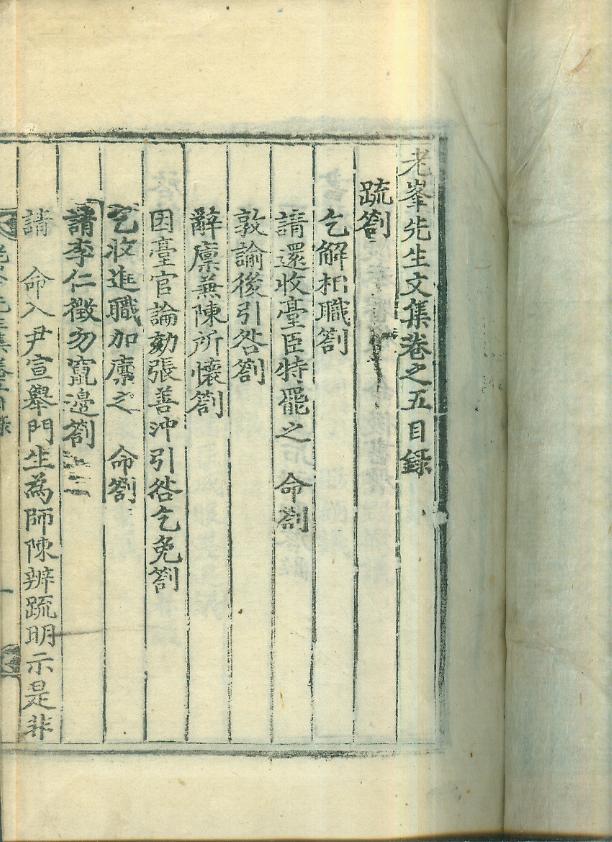 老峯先生文集卷之五目録
疏劄
乞解相職劄
請還收臺臣特罷之 命劄
敦諭後引咎劄
辭廩兼陳所懷劄
因臺官論劾張善沖引咎乞免劄
乞收進職加廩之 命劄
請李仁徵勿竄邊劄
請 命入尹宣舉門生為師陳辨疏明示是非
老峯先生集卷五目錄